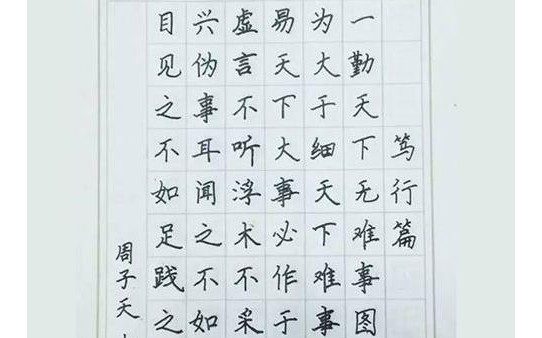 笃行篇
一勤天下无难事图
为大于细天下难事
易天下大事必作于
虚言不听浮术不采
兴伪事耳闻之不如
目见之不如足践之
周子天